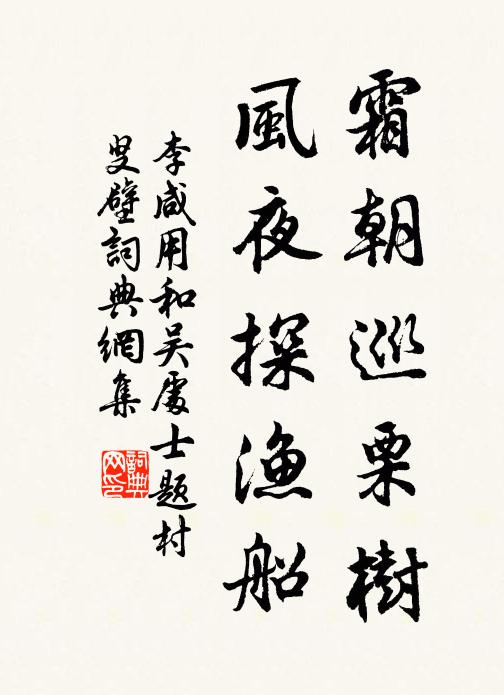 霜朝巡栗樹
風夜探漁船
李咸用和吴處士題村
叟壁詞典網集
詞典
网印